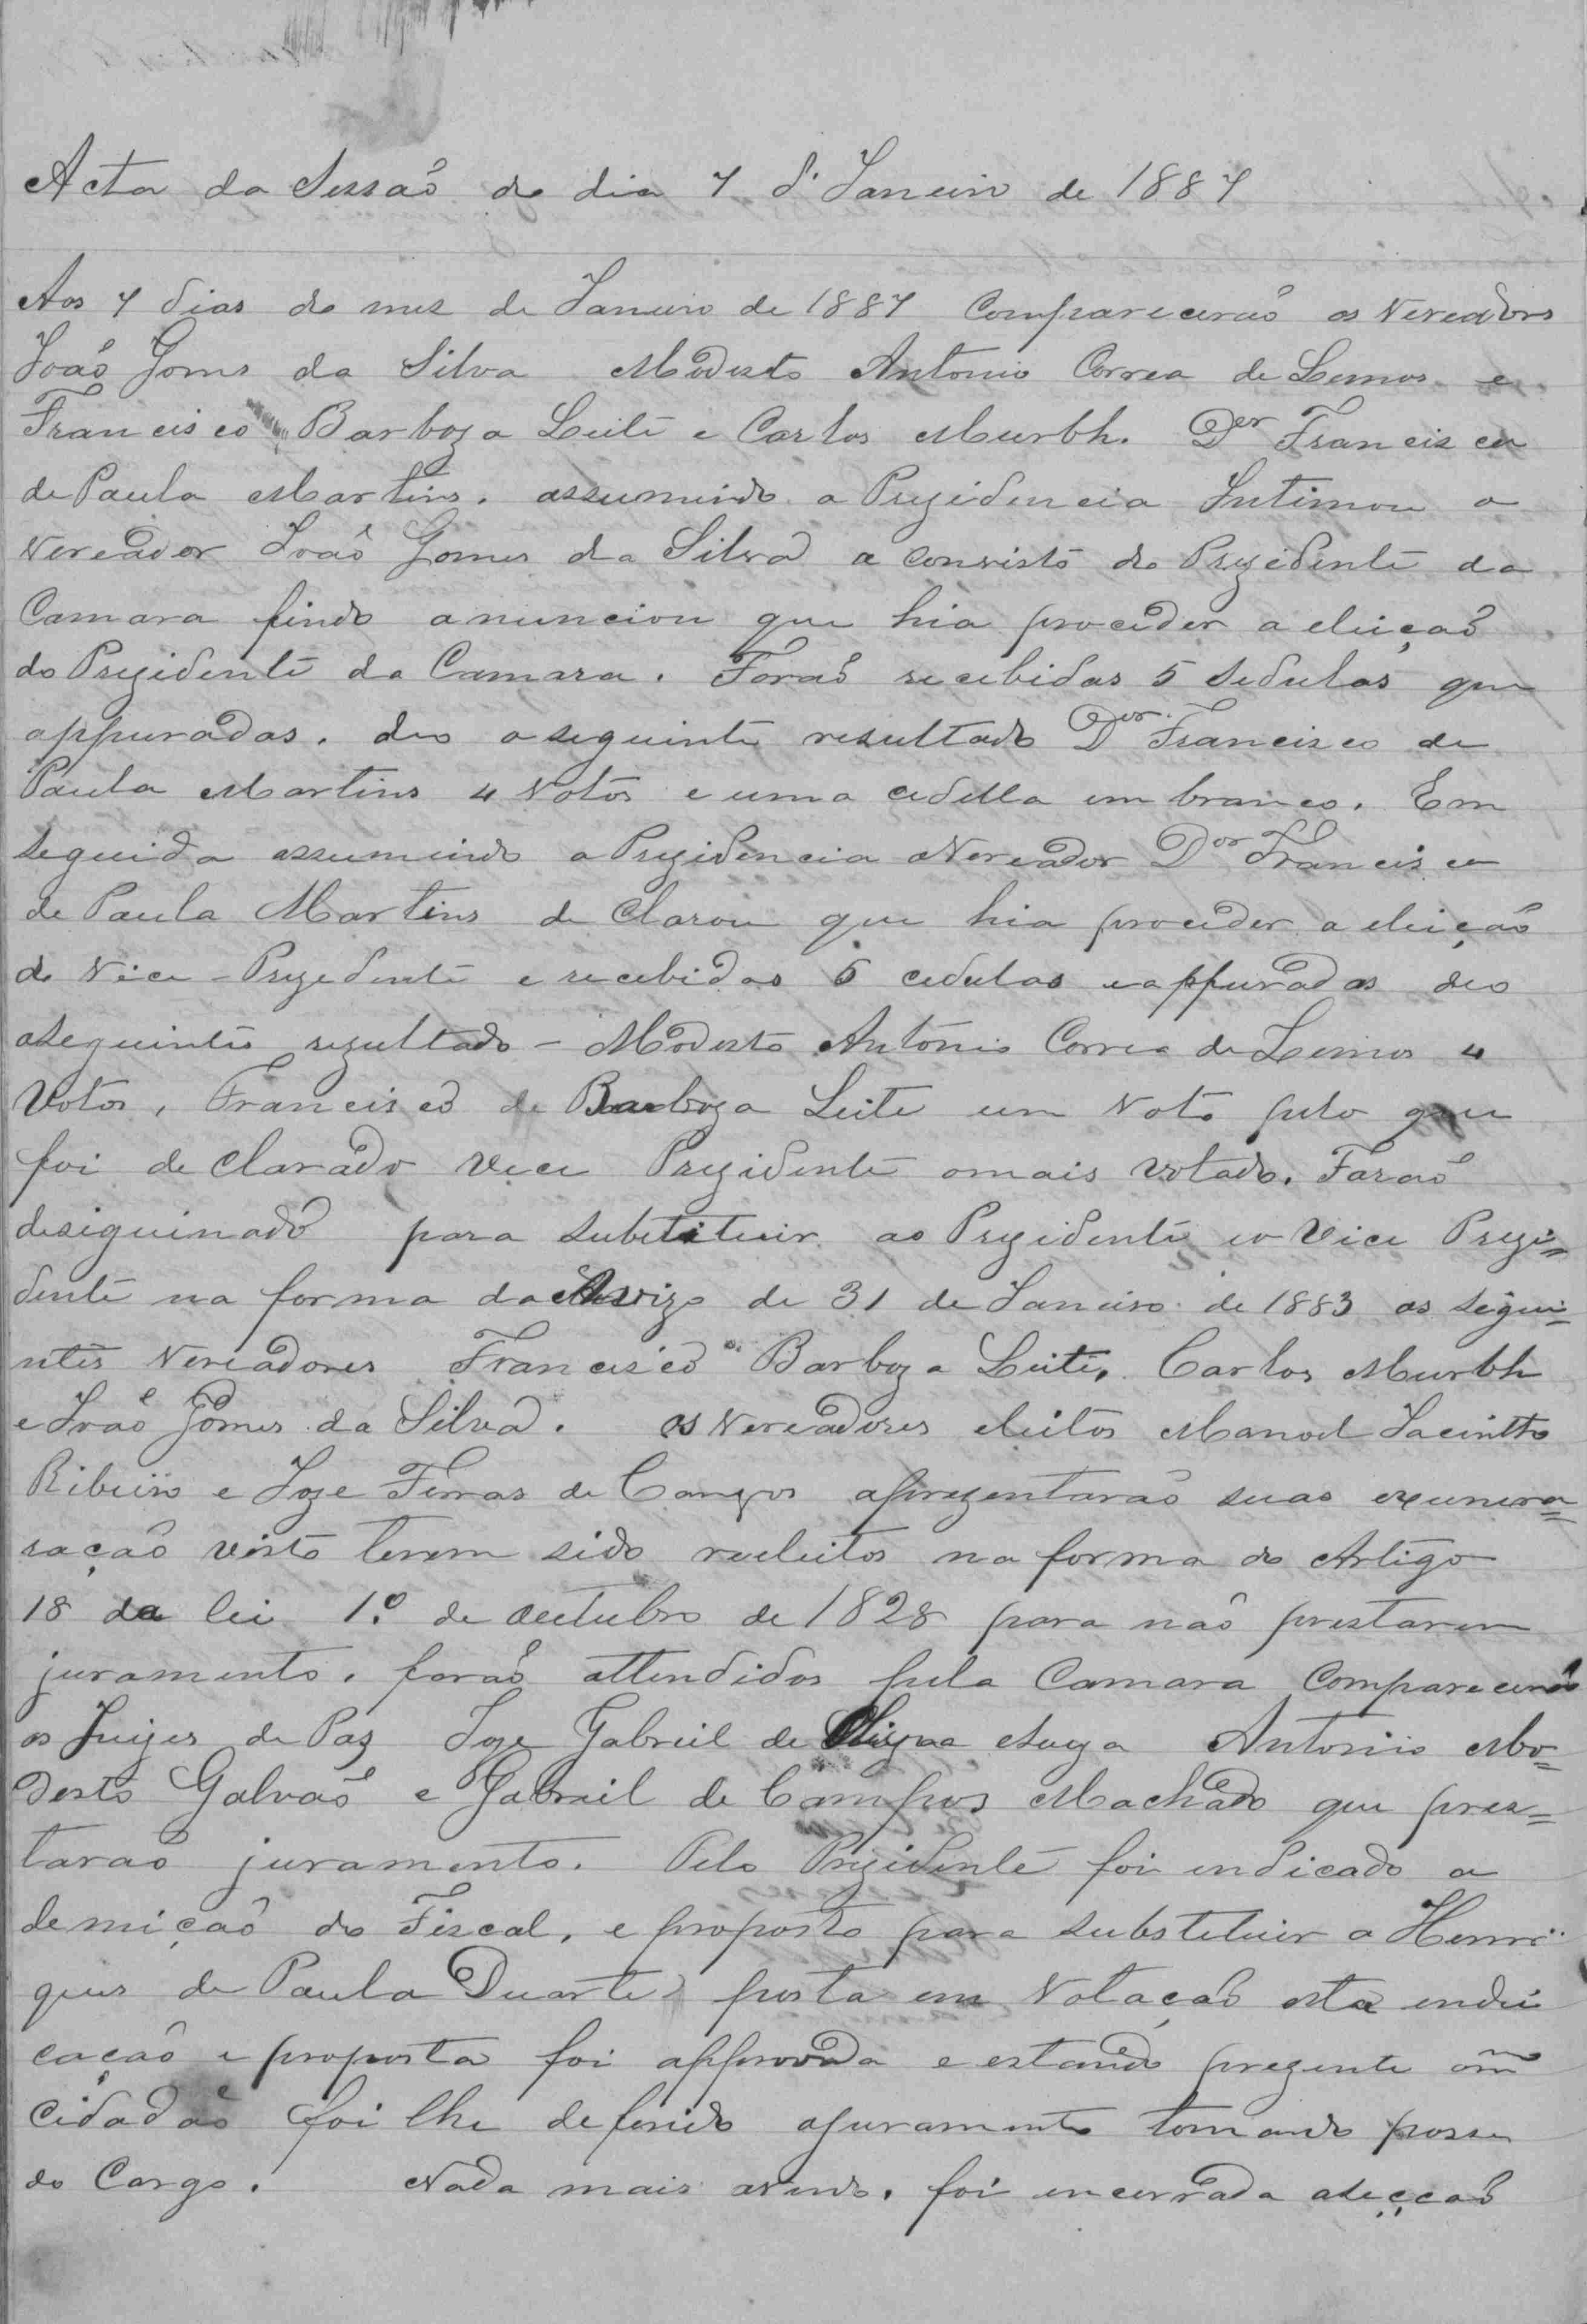 Acta da Sessaõ do dia 7 d'Janeiro de 1887
Aos 7 dias do mez de Janeiro de 1887 Compareceraõ os Vereadors
Joaõ Gomes da Silva Modesto Antonio Correa de Lemos e
Francisco Barboza Leite e Carlos Murbh. Der Francisco
de Paula Martins. assumindo a Prezidencia Intimou o
Vereador Joaõ Gomes da Silva a convistõ do Prezidente da
Camara findo anunciou que hia proceder a eleiçaõ
do Prezidente da Camara. Foraõ recebidas 5 sedulas que
appuradas. deo o seguinte resultado Dor Francisco de
Paula Martins 4 votos e uma cedulla em branco. Em
seguida assumindo a Prezidencia o Vereador Dor Francisco
de Paula Martins de Clarou que hia proceder a eleiçaõ
do Vice-Prezedente e recebidas 5 cedulas e appuradas deo
o seguintes rezultado - Modesto Antonio Correa de Lemos 4
Votos, Francisco de Barboza Leite um Voto pelo que
foi de Clarado Vice Prezidente o mais Votado. Faraõ
desiguinado para substituir ao Prezidente eo Vice Prezi=
dente na forma do Avizo de 31 de Janeiro de 1883 os segui=
ntes Vereadores Francisco Barboza Leite, Carlos Murbh
e Joaõ Gomes da Silva. os Vereadores eleitos Manoel Jacintho
Ribeiro e Joze Ferras de Campos aprezentaraõ suas exunera=
raçaõ visto terem sido reeleitos na forma do Artigo
18 da lei 1.º de Outubro de 1828 para naõ prestarem
juramento. foraõ attendidos pela Camara Compareceraõ
os Juizes de Paz Joze Gabriel de Antonio Mo=
desto Galvaõ e Gabriel de Campos Machado que pres=
taraõ juramento. Pelo Prezidente foi indicado a
demiçaõ do Fiscal, e proposto para substetuir a Henri
ques de Paula Duarte posta em Votaçaõ esta indi
caçaõ e proposta foi approvada e estando prezente o mmo
Cidadaõ foi lhe deferido o juramento tomando posse
do Cargo. Nada mais avendo, foi encerrada a secçaõ